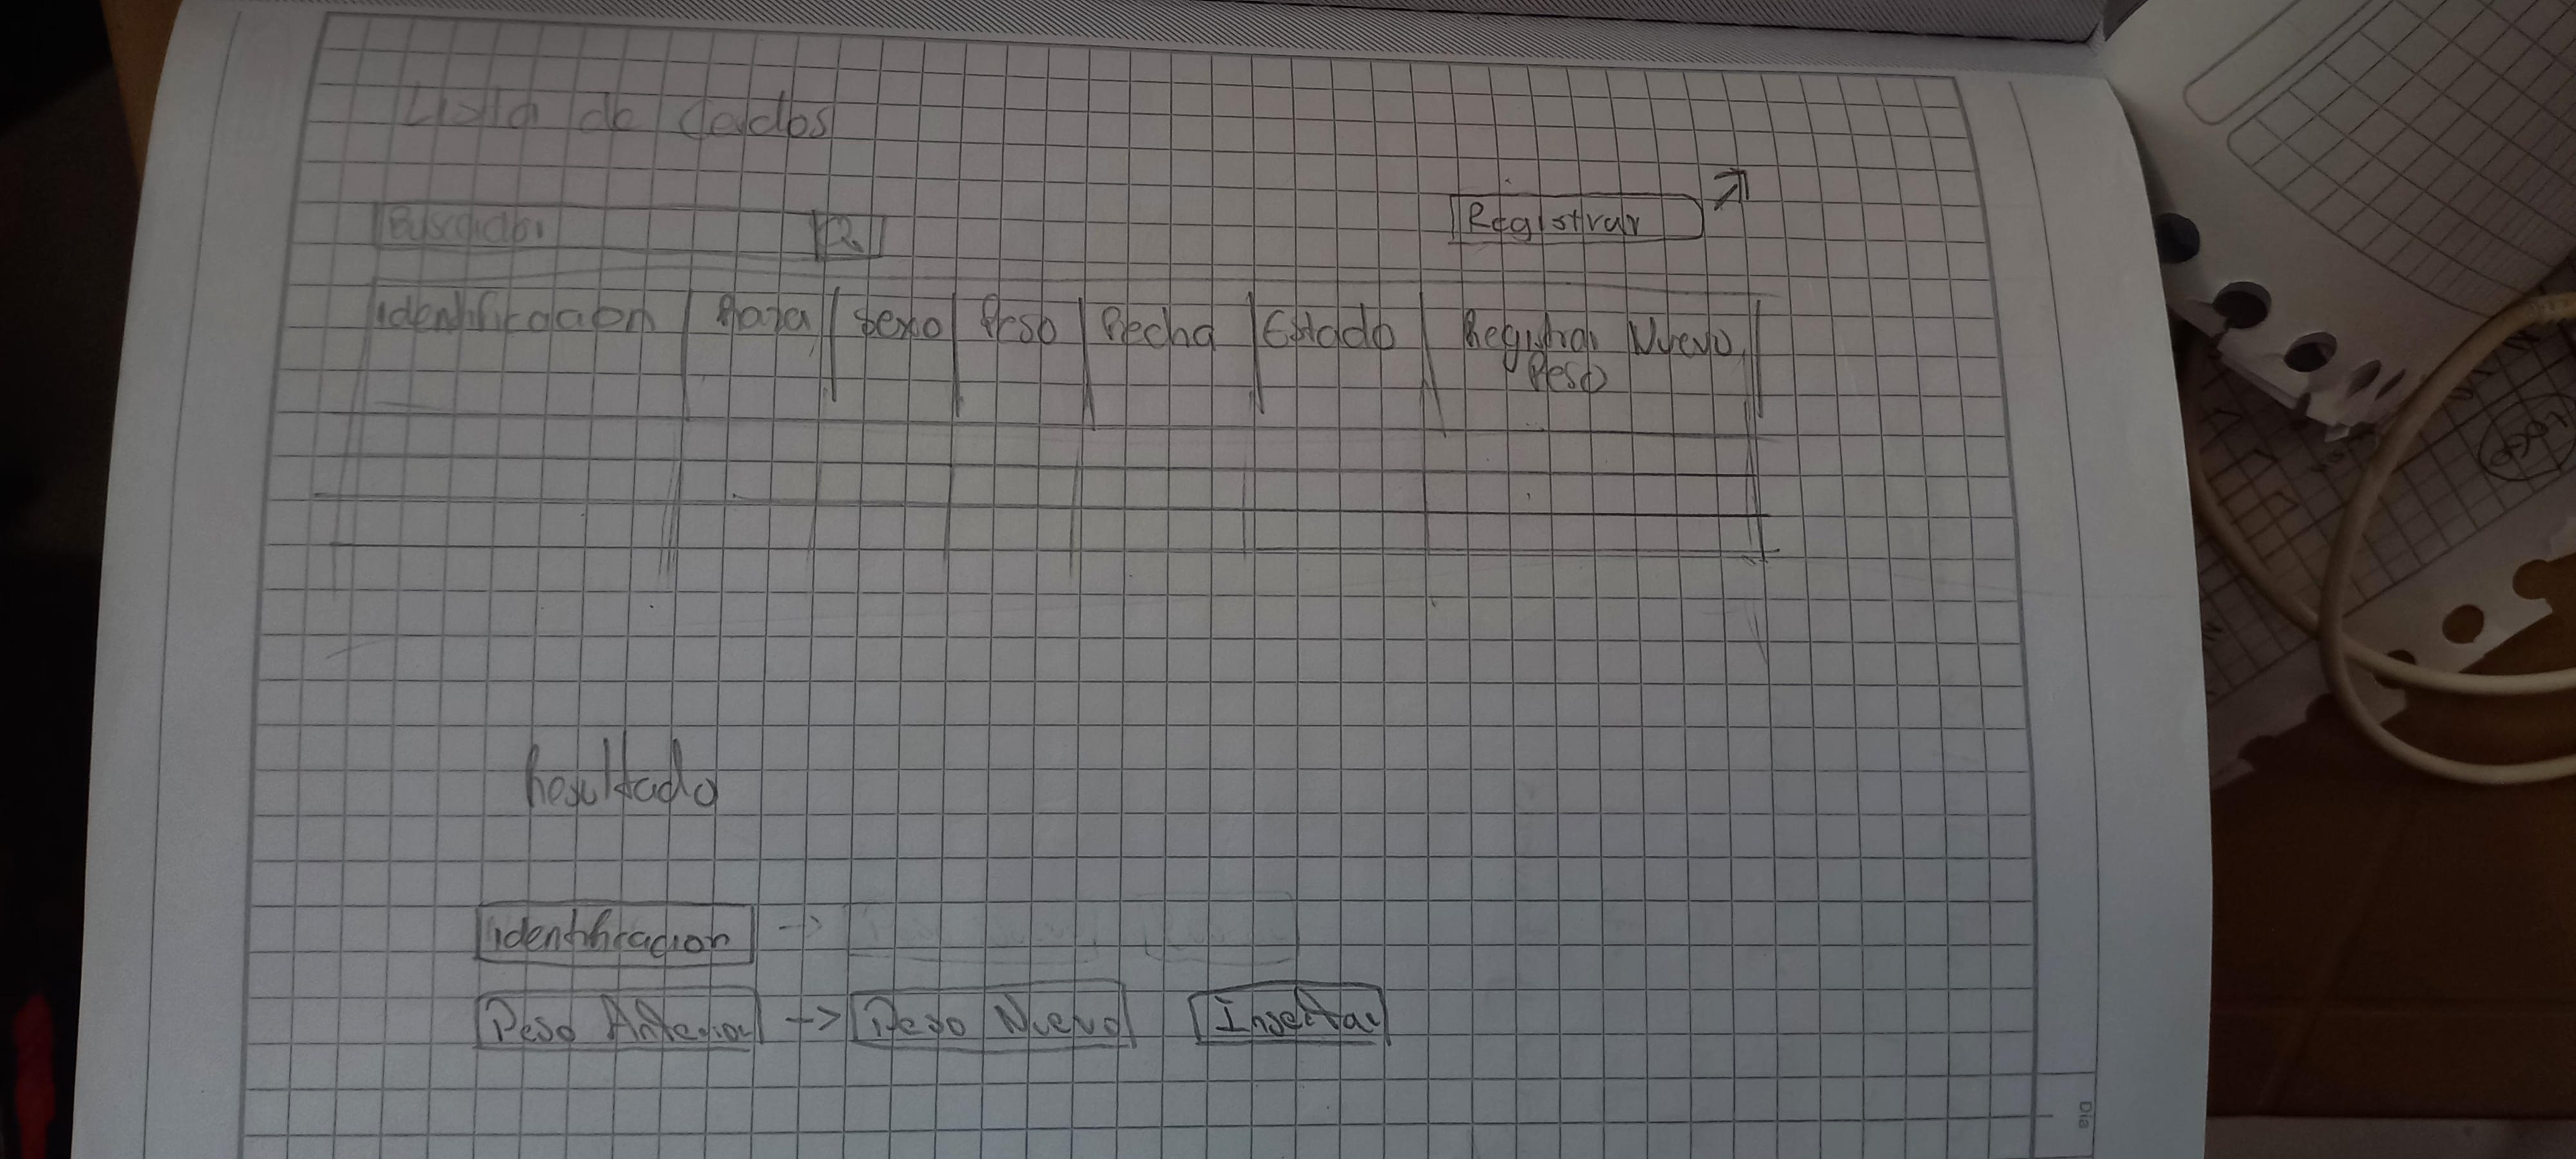 Lista de Cerdos
Buscador
Registrar
Identificacion Raza Sexo Peso Fecha Estado Registrar Nuevo
Peso
Resultado
identificacion ->
Peso Anterior -> Peso Nuevo Insertar
Dia